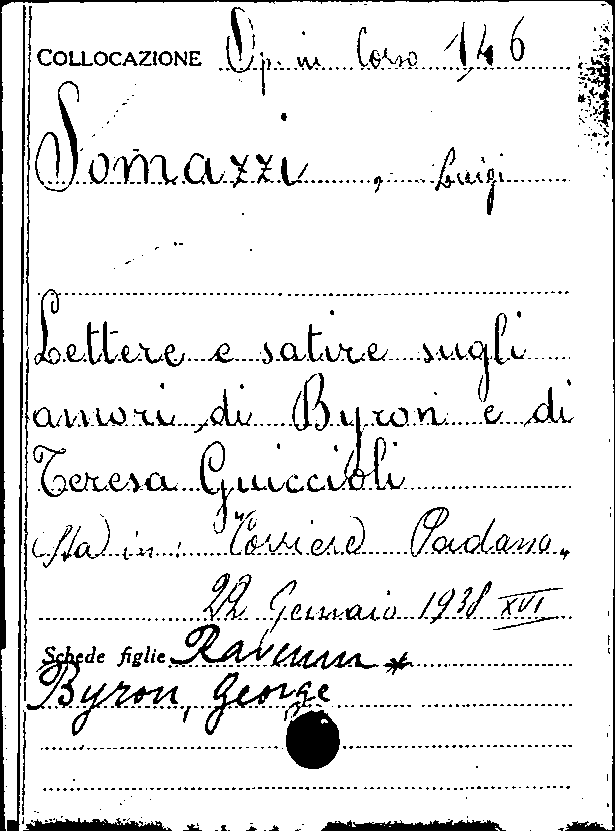 COLLOCAZIONE Op. in Corso 146
Somazzi, Luigi
Lettere e satire sugli
amori di Byron e di
Teresa Guiccioli
(Sta) in: "Corriere Padano"
22 Gennaio 1938 XVI
Schede figlie Ravenna *
Byron, George